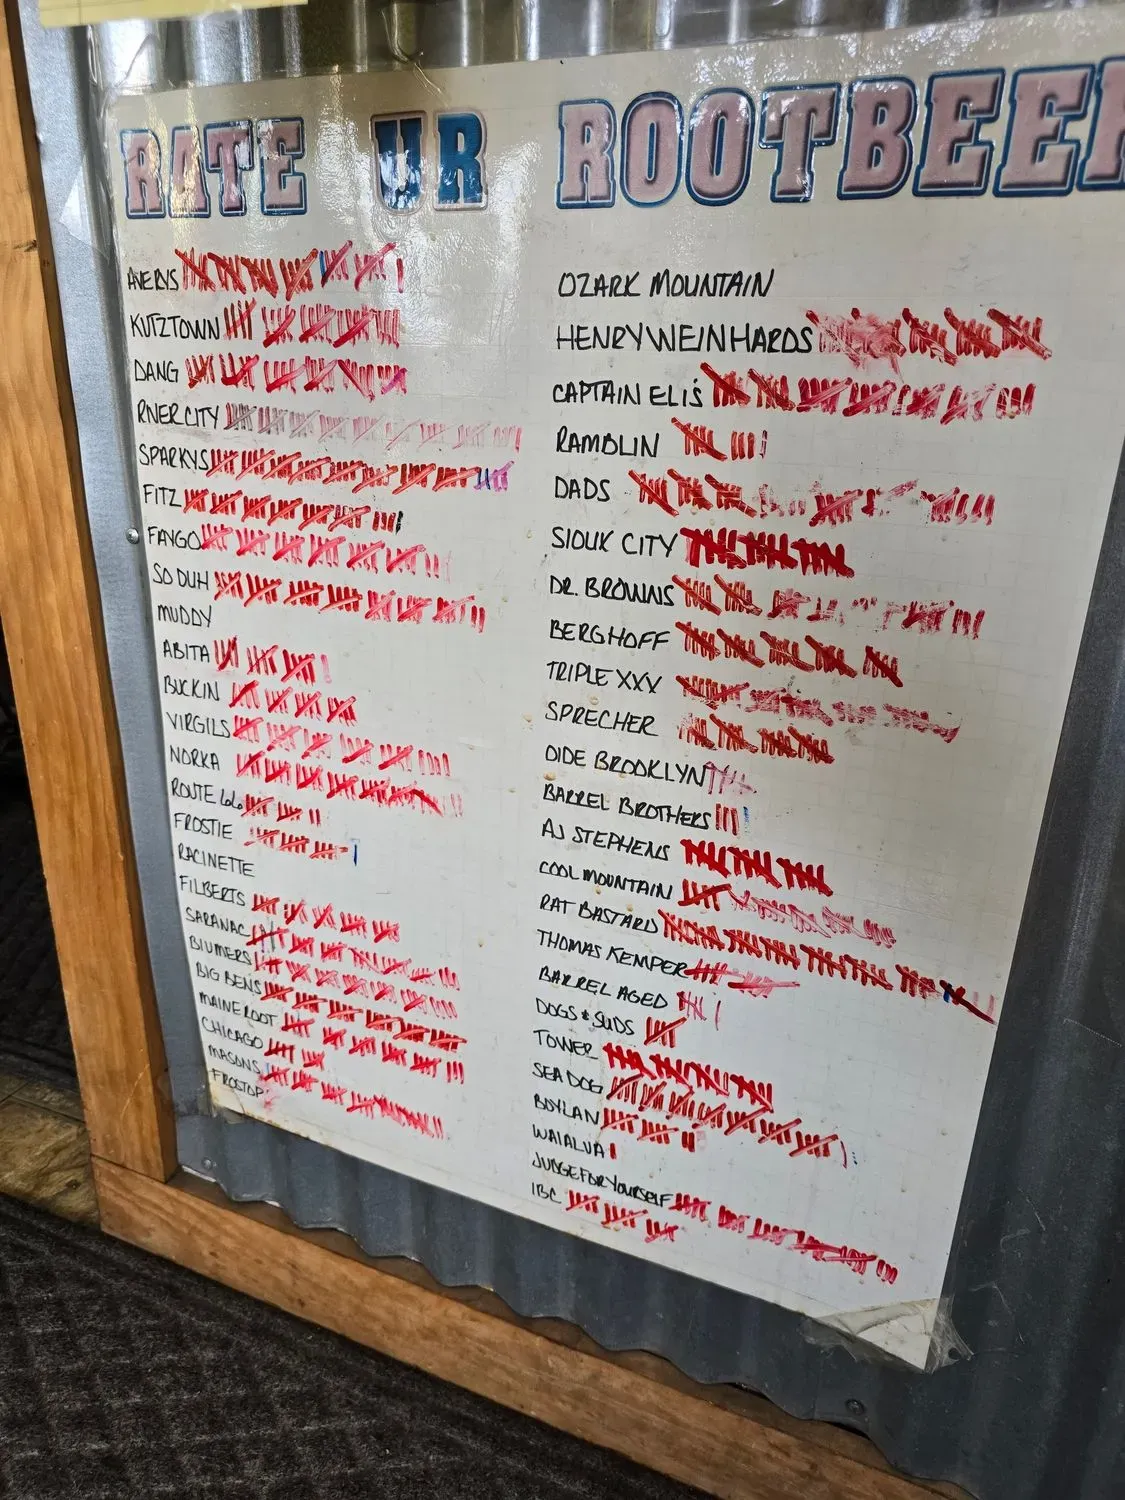 RATE UR ROOTBEER
AVERYS
KUTZTOWN
DANG
RIVER CITY
SPARKYS
FITZ
FAYGO
SODUH
MUDDY
ABITA
BUCKIN
VIRGILS
NORKA
ROUTE 66
FROSTIE
RACINETTE
FILBERTS
SARANAC
BLUMERS
BIG BENS
MAINE ROOT
CHICAGO
MASONS
FROSTOP
OZARK MOUNTAIN
HENRY WEINHARDS
CAPTAIN ELI'S
RAMBLIN
DADS
SIOUX CITY
DR. BROWNS
BERGHOFF
TRIPLE XXX
SPRECHER
OLDE BROOKLYN
BARREL BROTHERS
AJ STEPHENS
COOL MOUNTAIN
RAT BASTARD
THOMAS KEMPER
BARREL AGED
DOGS & SUDS
TOWER
SEA DOG
BOYLAN
WAIALUA
JUDGE FOR YOURSELF
IBC